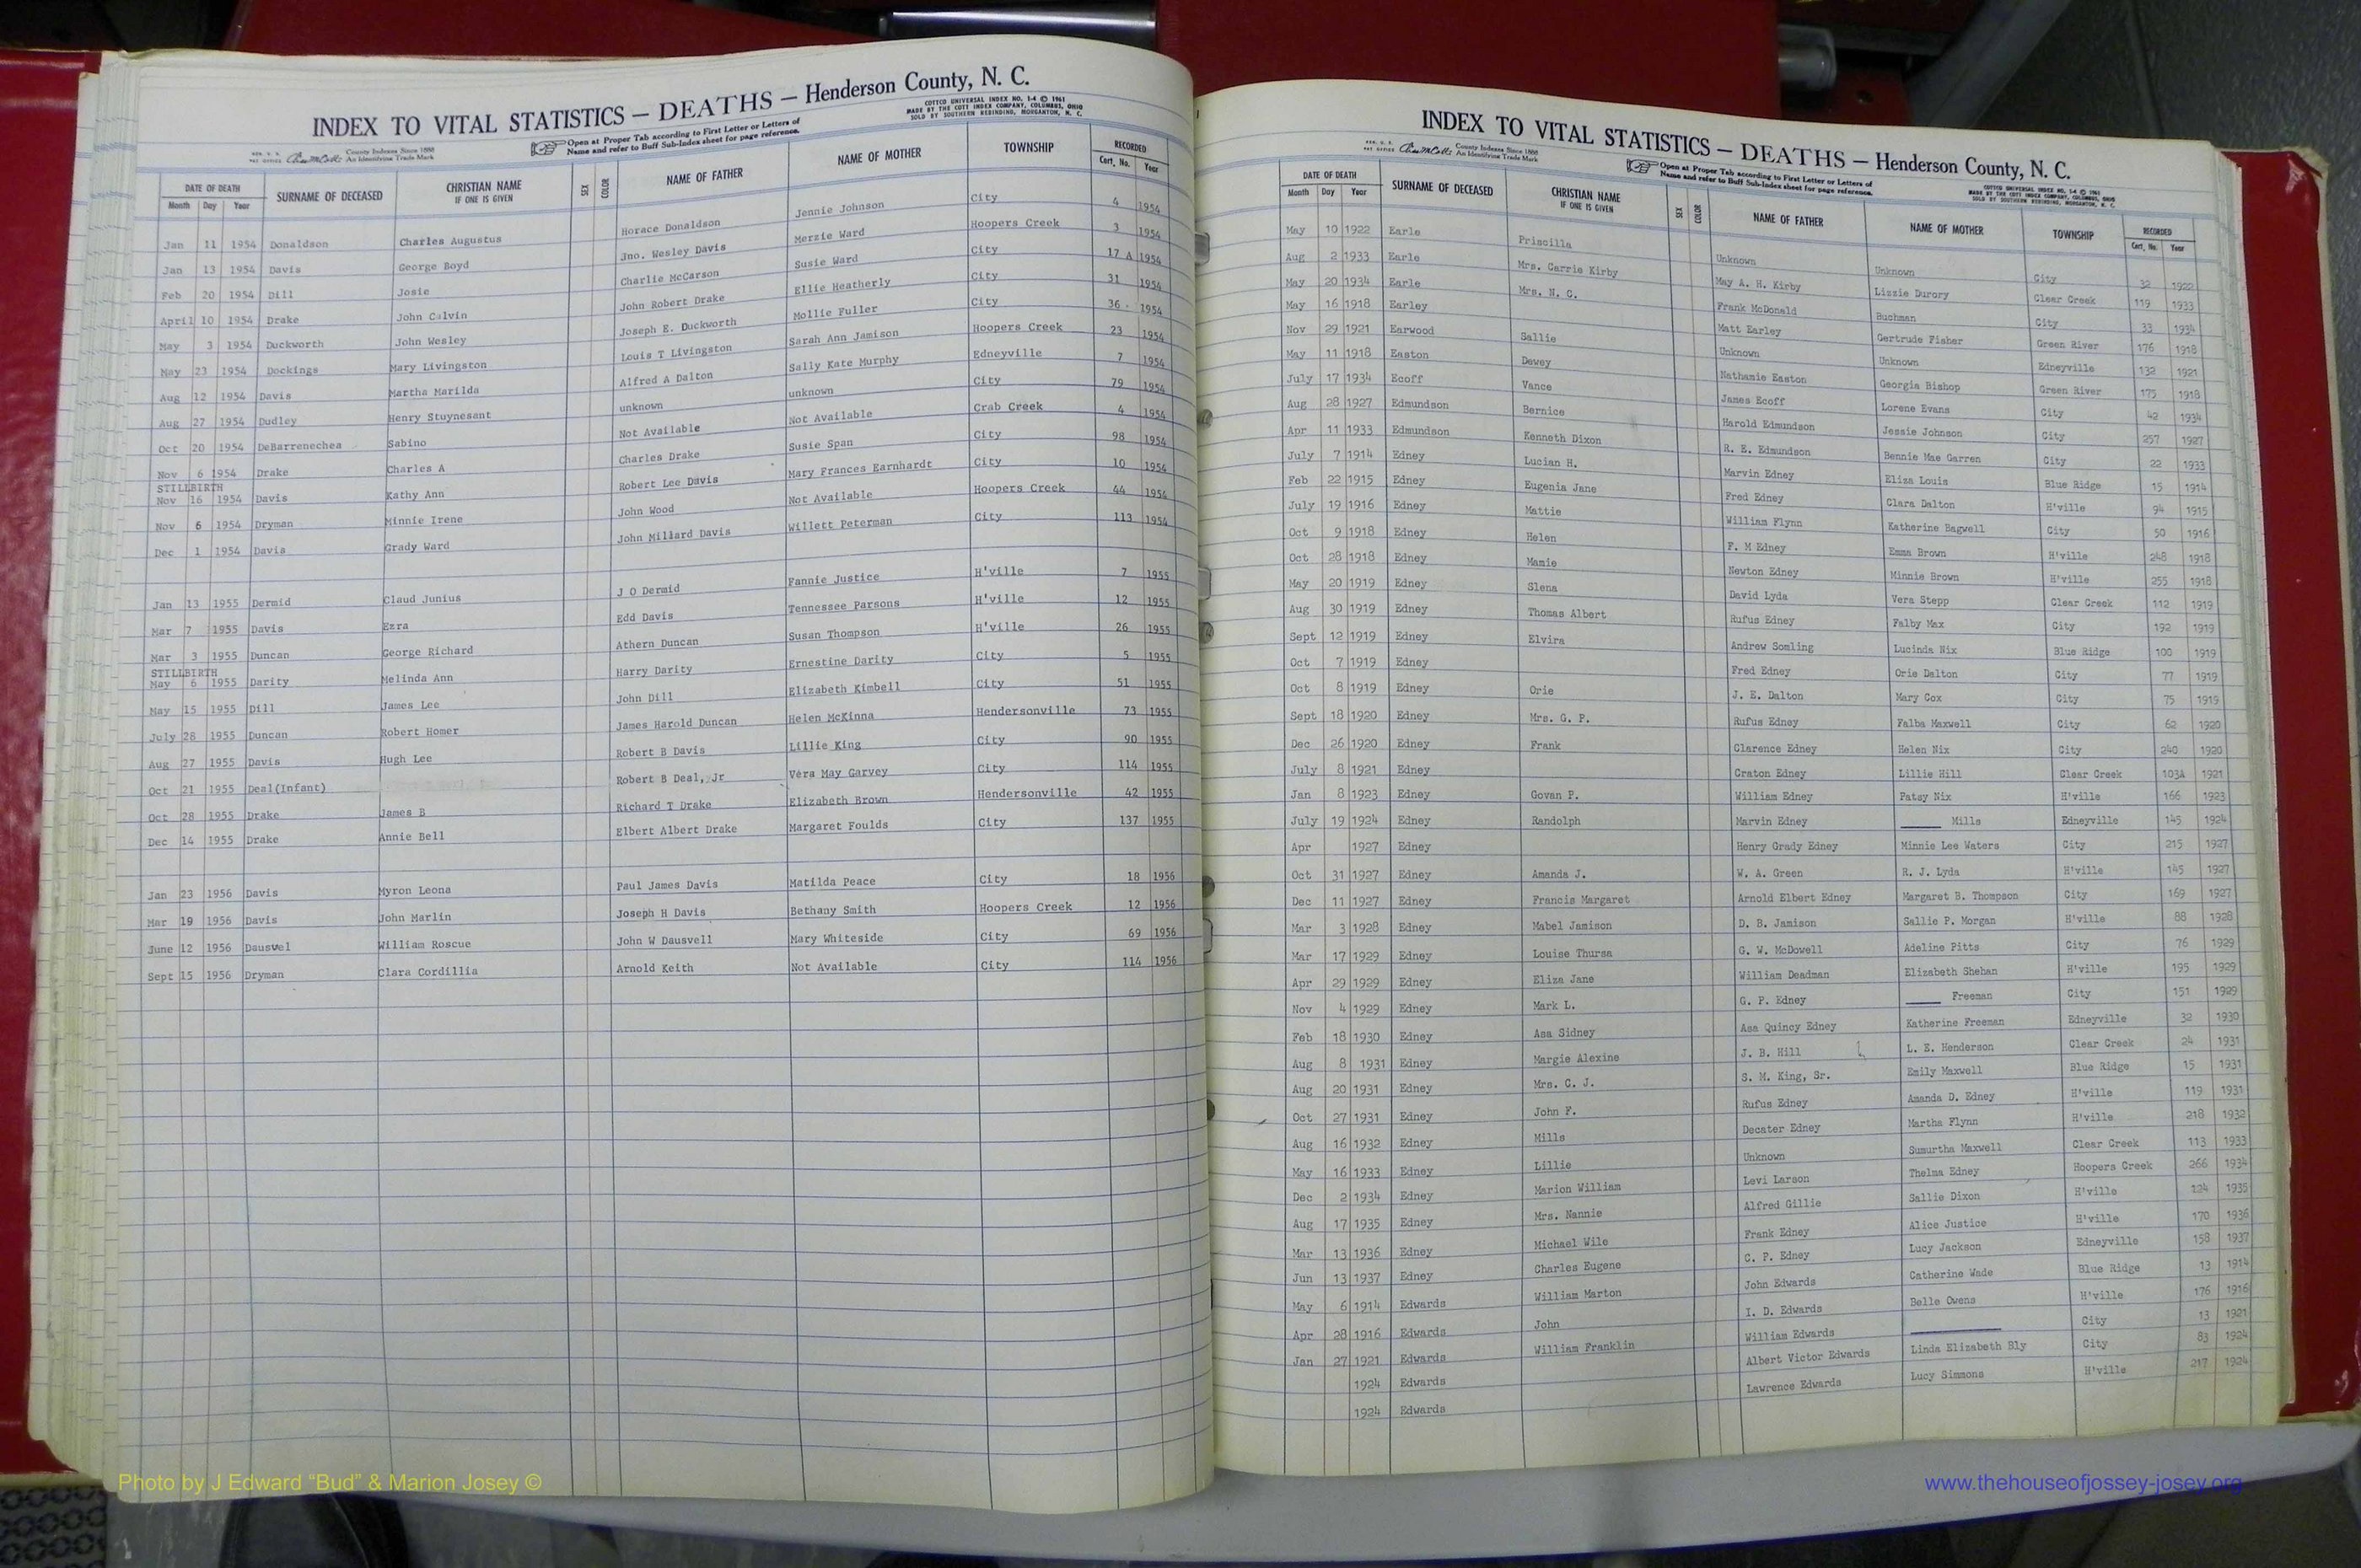 INDEX TO VITAL STATISTICS — DEATHS — Henderson County, N. C.
COTTCO UNIVERSAL INDEX NO. 1-4 © 1961
MADE BY THE COTT INDEX COMPANY, COLUMBUS, OHIO
SOLD BY SOUTHERN REBINDING, MORGANTON, N. C.
County Indexes Since 1888
An Identifying Trade Mark
Open at Proper Tab according to First Letter or Letters of
Name and refer to Buff Sub-Index sheet for page reference.
DATE OF DEATH SURNAME OF DECEASED CHRISTIAN NAME IF ONE IS GIVEN SEX COLOR NAME OF FATHER NAME OF MOTHER TOWNSHIP RECORDED
Month Day Year Cert. No. Year
Jan 11 1954 Donaldson Charles Augustus Horace Donaldson Jennie Johnson City 4 1954
Jan 13 1954 Davis George Boyd Jno. Wesley Davis Merzie Ward Hoopers Creek 3 1954
Feb 20 1954 Dill Josie Charlie McCarson Susie Ward City 17 A 1954
April 10 1954 Drake John Calvin John Robert Drake Ellie Heatherly City 31 1954
May 3 1954 Duckworth John Wesley Joseph E. Duckworth Mollie Fuller City 36 1954
May 23 1954 Dockings Mary Livingston Louis T Livingston Sarah Ann Jamison Hoopers Creek 23 1954
Aug 12 1954 Davis Martha Marilda Alfred A Dalton Sally Kate Murphy Edneyville 7 1954
Aug 27 1954 Dudley Henry Stuynesant unknown unknown City 79 1954
Oct 20 1954 DeBarrenechea Sabino Not Available Not Available Crab Creek 4 1954
Nov 6 1954 Drake Charles A Charles Drake Susie Span City 98 1954
STILLBIRTH
Nov 16 1954 Davis Kathy Ann Robert Lee Davis Mary Frances Earnhardt City 10 1954
Nov 6 1954 Dryman Minnie Irene John Wood Not Available Hoopers Creek 44 1954
Dec 1 1954 Davis Grady Ward John Millard Davis Willett Peterman City 113 1954
Jan 13 1955 Dermid Claud Junius J O Dermid Fannie Justice H'ville 7 1955
Mar 7 1955 Davis Ezra Edd Davis Tennessee Parsons H'ville 12 1955
Mar 3 1955 Duncan George Richard Athern Duncan Susan Thompson H'ville 26 1955
STILLBIRTH
May 6 1955 Darity Melinda Ann Harry Darity Ernestine Darity City 5 1955
May 15 1955 Dill James Lee John Dill Elizabeth Kimbell City 51 1955
July 28 1955 Duncan Robert Homer James Harold Duncan Helen McKinna Hendersonville 73 1955
Aug 27 1955 Davis Hugh Lee Robert B Davis Lillie King City 90 1955
Oct 21 1955 Deal(Infant) Robert B Deal, Jr Vera May Garvey City 114 1955
Oct 28 1955 Drake James B Richard T Drake Elizabeth Brown Hendersonville 42 1955
Dec 14 1955 Drake Annie Bell Elbert Albert Drake Margaret Foulds City 137 1955
Jan 23 1956 Davis Myron Leona Paul James Davis Matilda Peace City 18 1956
Mar 19 1956 Davis John Marlin Joseph H Davis Bethany Smith Hoopers Creek 12 1956
June 12 1956 Dausvel William Roscue John W Dausvell Mary Whiteside City 69 1956
Sept 15 1956 Dryman Clara Cordillia Arnold Keith Not Available City 114 1956
INDEX TO VITAL STATISTICS — DEATHS — Henderson County, N. C.
County Indexes Since 1888
An Identifying Trade Mark
Open at Proper Tab according to First Letter or Letters of
Name and refer to Buff Sub-Index sheet for page reference.
COTTCO UNIVERSAL INDEX NO. 1-4 © 1961
MADE BY THE COTT INDEX COMPANY, COLUMBUS, OHIO
SOLD BY SOUTHERN REBINDING, MORGANTON, N. C.
DATE OF DEATH SURNAME OF DECEASED CHRISTIAN NAME IF ONE IS GIVEN SEX COLOR NAME OF FATHER NAME OF MOTHER TOWNSHIP RECORDED
Month Day Year Cert. No. Year
May 10 1922 Earle Priscilla Unknown Unknown City 32 1922
Aug 2 1933 Earle Mrs. Carrie Kirby May A. H. Kirby Lizzie Durory Clear Creek 119 1933
May 20 1934 Earle Mrs. N. C. Frank McDonald Buchman City 33 1934
May 16 1918 Earley Matt Earley Gertrude Fisher Green River 176 1918
Nov 29 1921 Earwood Sallie Unknown Unknown Edneyville 132 1921
May 11 1918 Easton Dewey Nathanie Easton Georgia Bishop Green River 175 1918
July 17 1934 Ecoff Vance James Ecoff Lorene Evans City 42 1934
Aug 28 1927 Edmundson Bernice Harold Edmundson Jessie Johnson City 257 1927
Apr 11 1933 Edmundson Kenneth Dixon R. E. Edmundson Bennie Mae Garren City 22 1933
July 7 1914 Edney Lucian H. Marvin Edney Eliza Louis Blue Ridge 15 1914
Feb 22 1915 Edney Eugenia Jane Fred Edney Clara Dalton H'ville 94 1915
July 19 1916 Edney Mattie William Flynn Katherine Bagwell City 50 1916
Oct 9 1918 Edney Helen F. M Edney Emma Brown H'ville 248 1918
Oct 28 1918 Edney Mamie Newton Edney Minnie Brown H'ville 255 1918
May 20 1919 Edney Slena David Lyda Vera Stepp Clear Creek 112 1919
Aug 30 1919 Edney Thomas Albert Rufus Edney Falby Max City 192 1919
Sept 12 1919 Edney Elvira Andrew Somling Lucinda Nix Blue Ridge 100 1919
Oct 7 1919 Edney Fred Edney Orie Dalton City 77 1919
Oct 8 1919 Edney Orie J. E. Dalton Mary Cox City 75 1919
Sept 18 1920 Edney Mrs. G. P. Rufus Edney Falba Maxwell City 62 1920
Dec 26 1920 Edney Frank Clarence Edney Helen Nix City 240 1920
July 8 1921 Edney Craton Edney Lillie Hill Clear Creek 103A 1921
Jan 8 1923 Edney Govan P. William Edney Patsy Nix H'ville 166 1923
July 19 1924 Edney Randolph Marvin Edney Mills Edneyville 145 1924
Apr 1927 Edney Henry Grady Edney Minnie Lee Waters City 215 1927
Oct 31 1927 Edney Amanda J. W. A. Green R. J. Lyda H'ville 145 1927
Dec 11 1927 Edney Francis Margaret Arnold Elbert Edney Margaret B. Thompson City 169 1927
Mar 3 1928 Edney Mabel Jamison D. B. Jamison Sallie P. Morgan H'ville 88 1928
Mar 17 1929 Edney Louise Thursa G. W. McDowell Adeline Pitts City 76 1929
Apr 29 1929 Edney Eliza Jane William Deadman Elizabeth Shehan H'ville 195 1929
Nov 4 1929 Edney Mark L. G. P. Edney Freeman City 151 1929
Feb 18 1930 Edney Asa Sidney Asa Quincy Edney Katherine Freeman Edneyville 32 1930
Aug 8 1931 Edney Margie Alexine J. B. Hill L. E. Henderson Clear Creek 24 1931
Aug 20 1931 Edney Mrs. C. J. S. M. King, Sr. Emily Maxwell Blue Ridge 15 1931
Oct 27 1931 Edney John F. Rufus Edney Amanda D. Edney H'ville 119 1931
Aug 16 1932 Edney Mills Decater Edney Martha Flynn H'ville 218 1932
May 16 1933 Edney Lillie Unknown Sumurtha Maxwell Clear Creek 113 1933
Dec 2 1934 Edney Marion William Levi Larson Thelma Edney Hoopers Creek 266 1934
Aug 17 1935 Edney Mrs. Nannie Alfred Gillie Sallie Dixon H'ville 124 1935
Mar 13 1936 Edney Michael Wile Frank Edney Alice Justice H'ville 170 1936
Jun 13 1937 Edney Charles Eugene C. P. Edney Lucy Jackson Edneyville 158 1937
May 6 1914 Edwards William Marton John Edwards Catherine Wade Blue Ridge 13 1914
Apr 28 1916 Edwards John I. D. Edwards Belle Owens H'ville 176 1916
Jan 27 1921 Edwards William Franklin William Edwards City 13 1921
1924 Edwards Albert Victor Edwards Linda Elizabeth Bly City 83 1924
1924 Edwards Lawrence Edwards Lucy Simmons H'ville 217 1924
Photo by J Edward “Bud” & Marion Josey ©
www.thehouseofjossey-josey.org